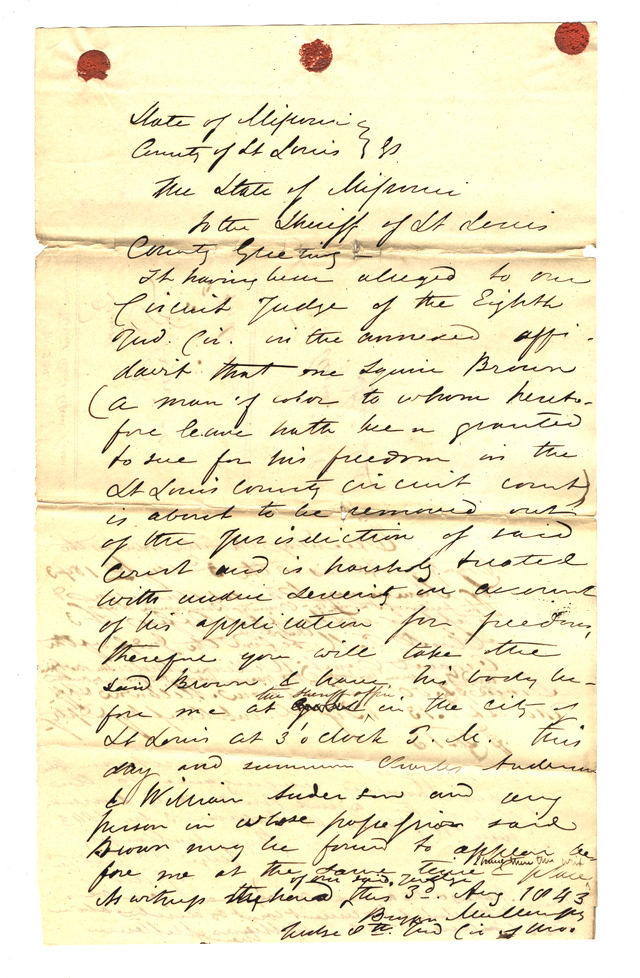 State of Missouri }
County of St Louis } Ss
The State of Missouri
to the Sheriff of St Louis
County Greeting
It having been alleged to our
Circuit Judge of the Eighth
Jud. Cir. in the annexed affi-
davit that one Squire Brown
(a man of color to whom hereto-
fore leave hath been granted
to sue for his freedom in the
St Louis County circuit court)
is about to be removed out
of the Jurisdiction of said
court and is harshly treated
with undue severity on account
of his application for freedom,
therefore you will take the
said Brown & have his body be-
fore me at the sheriff office in the city of
St Louis at 3 o'clock P. M. this
day and summon Charles Anderson
& William Anderson and any
person in whose possession said
Brown may be found to appear be-
fore me at the same time & place
have then this writ
As witness the hand of our said Judge this 3d. Aug 1843
Bryan Mullanphy
Judge 8th. Jud Cir of Mo.